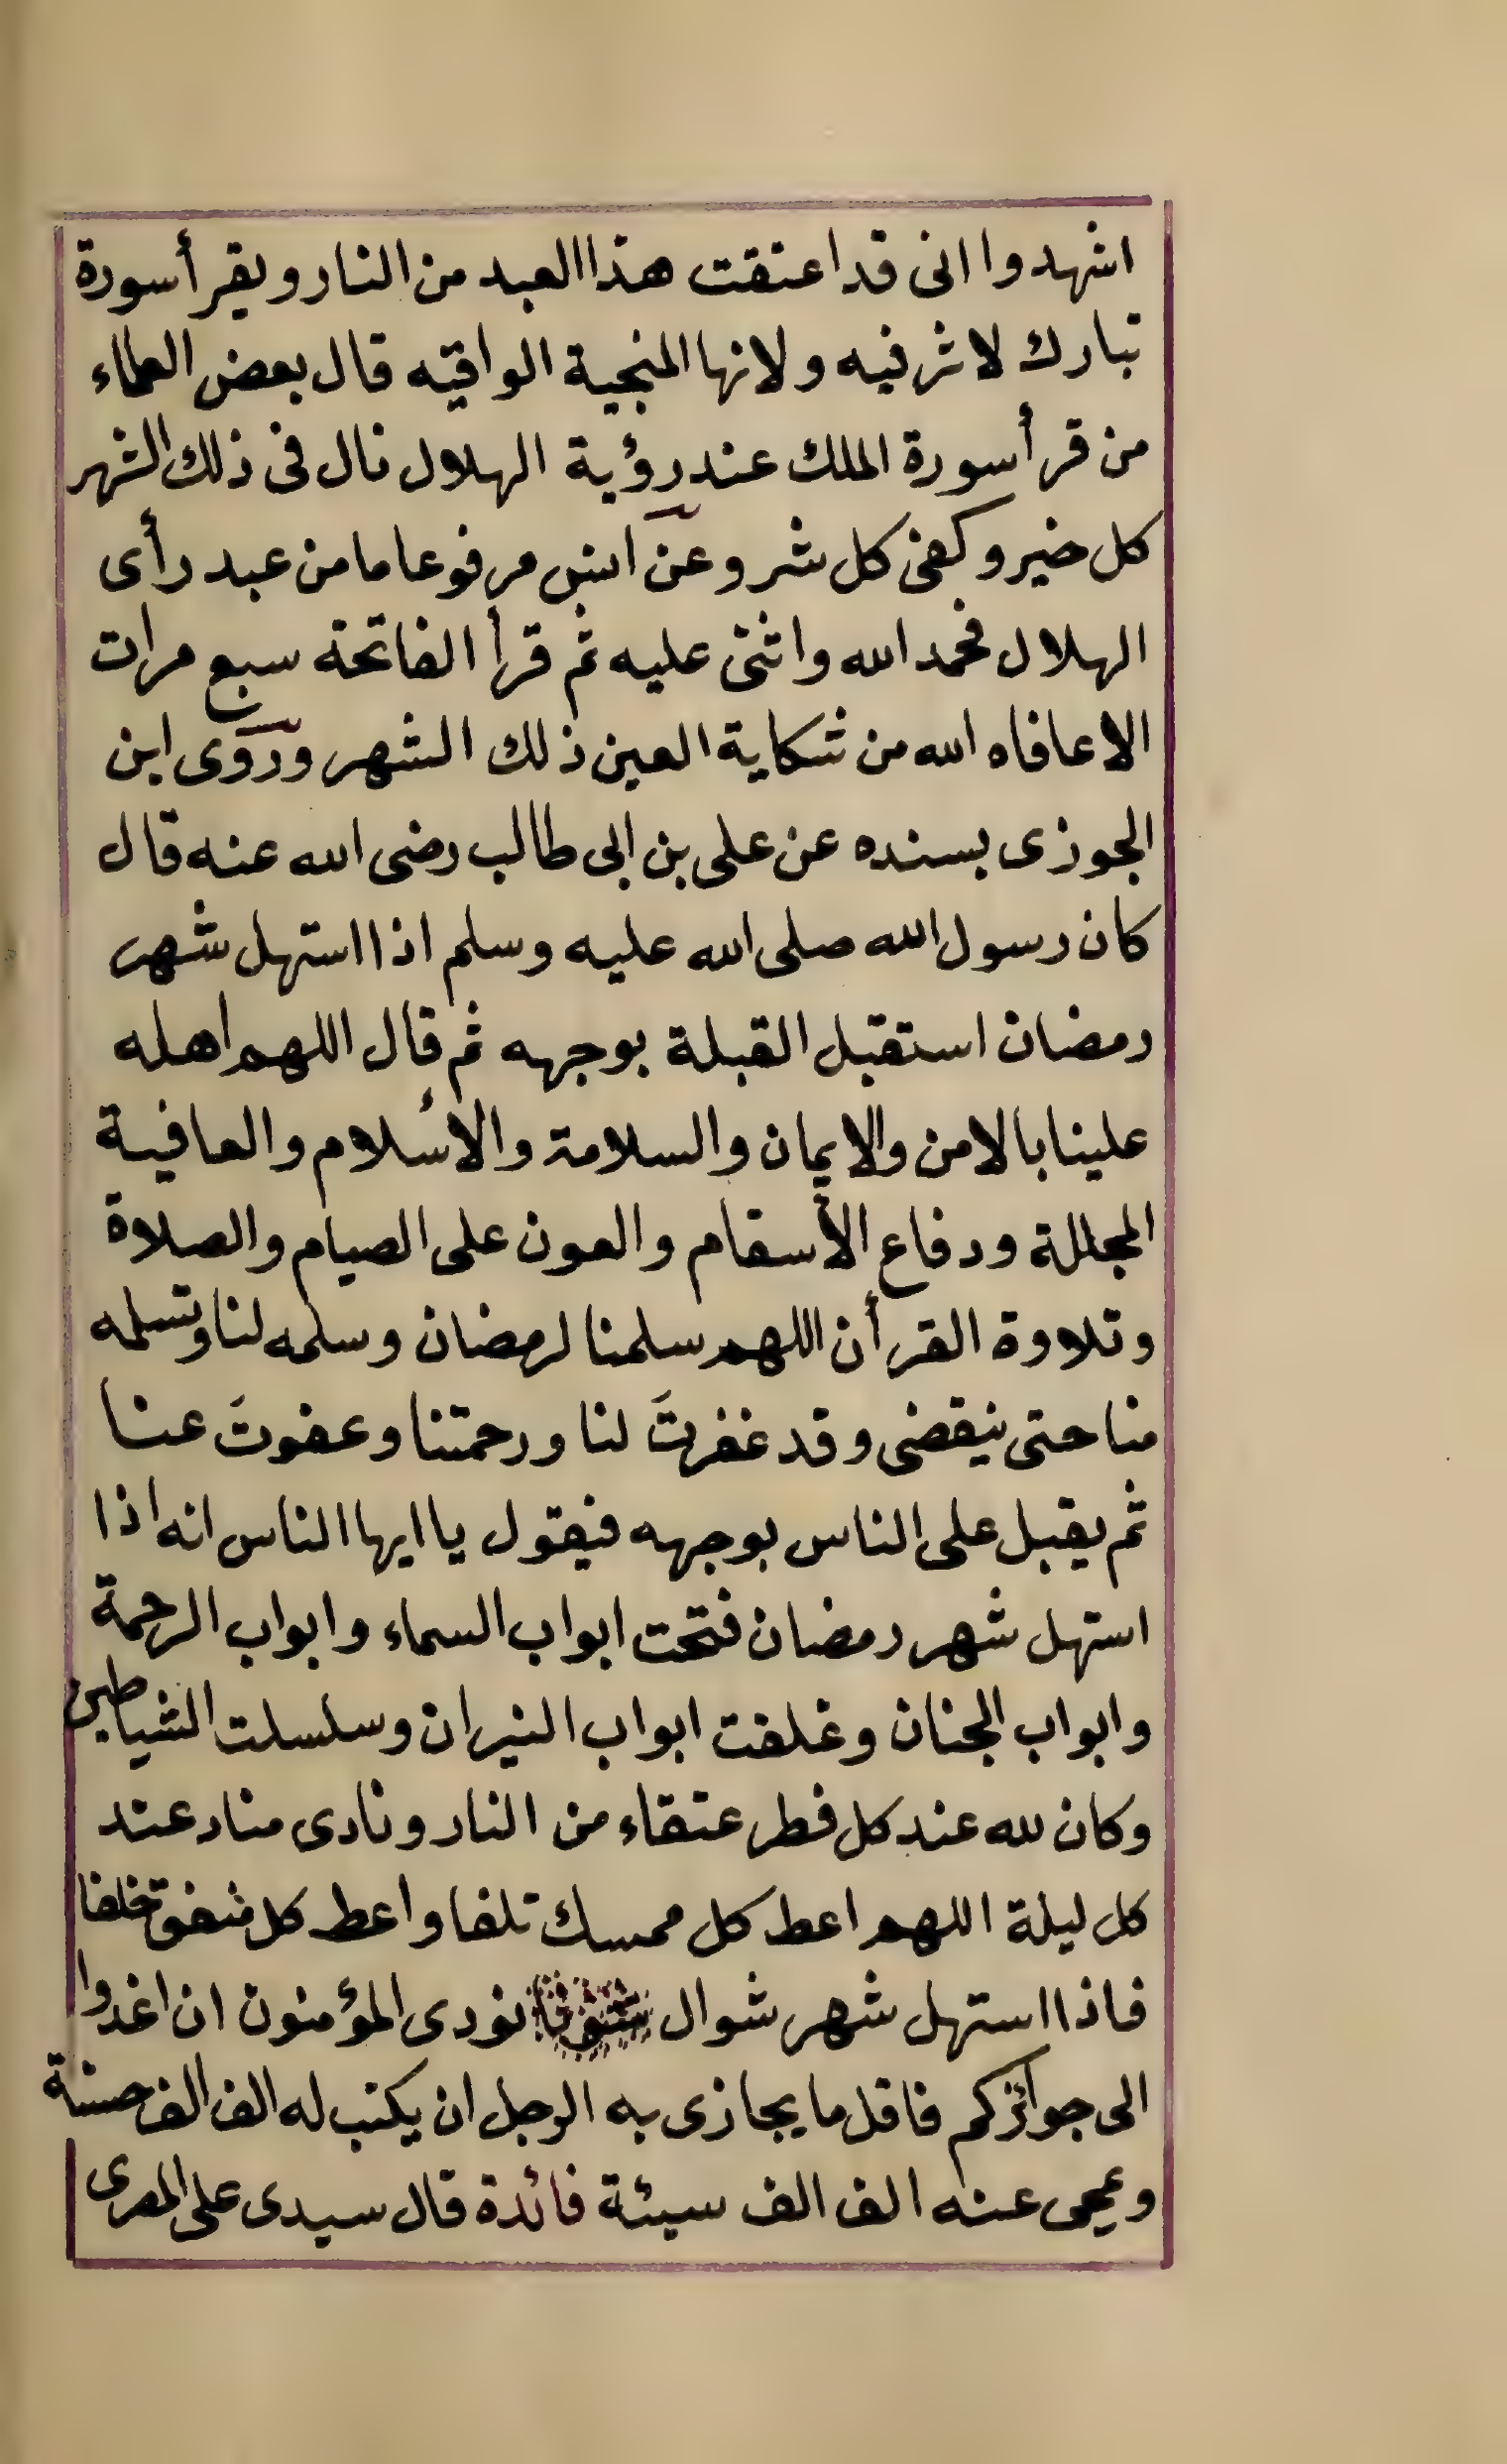 اشهدوا انى قد اعتقت هذا العبد من النار ويقرأ سورة
تبارك لاثر فيه ولانها المنجية الواقيه قال بعض العلماء
من قرأ سورة الملك عند رؤية الهلال نال فى ذلك الشهر
كل خير وكفى كل شر وعن انس مرفوعا ما من عبد رأى
الهلال فحمد الله واثنى عليه ثم قرأ الفاتحة سبع مرات
الا عافاه الله من شكاية العين ذلك الشهر وروى ابن
الجوزى بسنده عن على بن ابى طالب رضى الله عنه قال
كان رسول الله صلى الله عليه وسلم اذا استهل شهر
رمضان استقبل القبلة بوجهه ثم قال اللهم اهله
علينا بالامن والايمان والسلامة والاسلام والعافية
المجللة ودفاع الأسقام والعون على الصيام والصلاة
وتلاوة القرأن اللهم سلمنا لرمضان وسلمه لنا وتسلمه
منا حتى ينقضى وقد غفرتَ لنا ورحمتنا وعفوتَ عنا
ثم يقبل على الناس بوجهه فيقول يا ايها الناس انه اذا
استهل شهر رمضان فتحت ابواب السماء وابواب الرحمة
وابواب الجنان وغلقت ابواب النيران وسلسلت الشياطين
وكان لله عند كل فطر عتقاء من النار ونادى مناد عند
كل ليلة اللهم اعط كل ممسك تلفا واعط كل منفق خلفا
فاذا استهل شهر شوال نودى المؤمنون ان اغدوا
الى جوائزكم فاقل ما يجازى به الرجل ان يكتب له الف الف حسنة
ويمحى عنه الف الف سيئة فائدة قال سيدى على المصرى